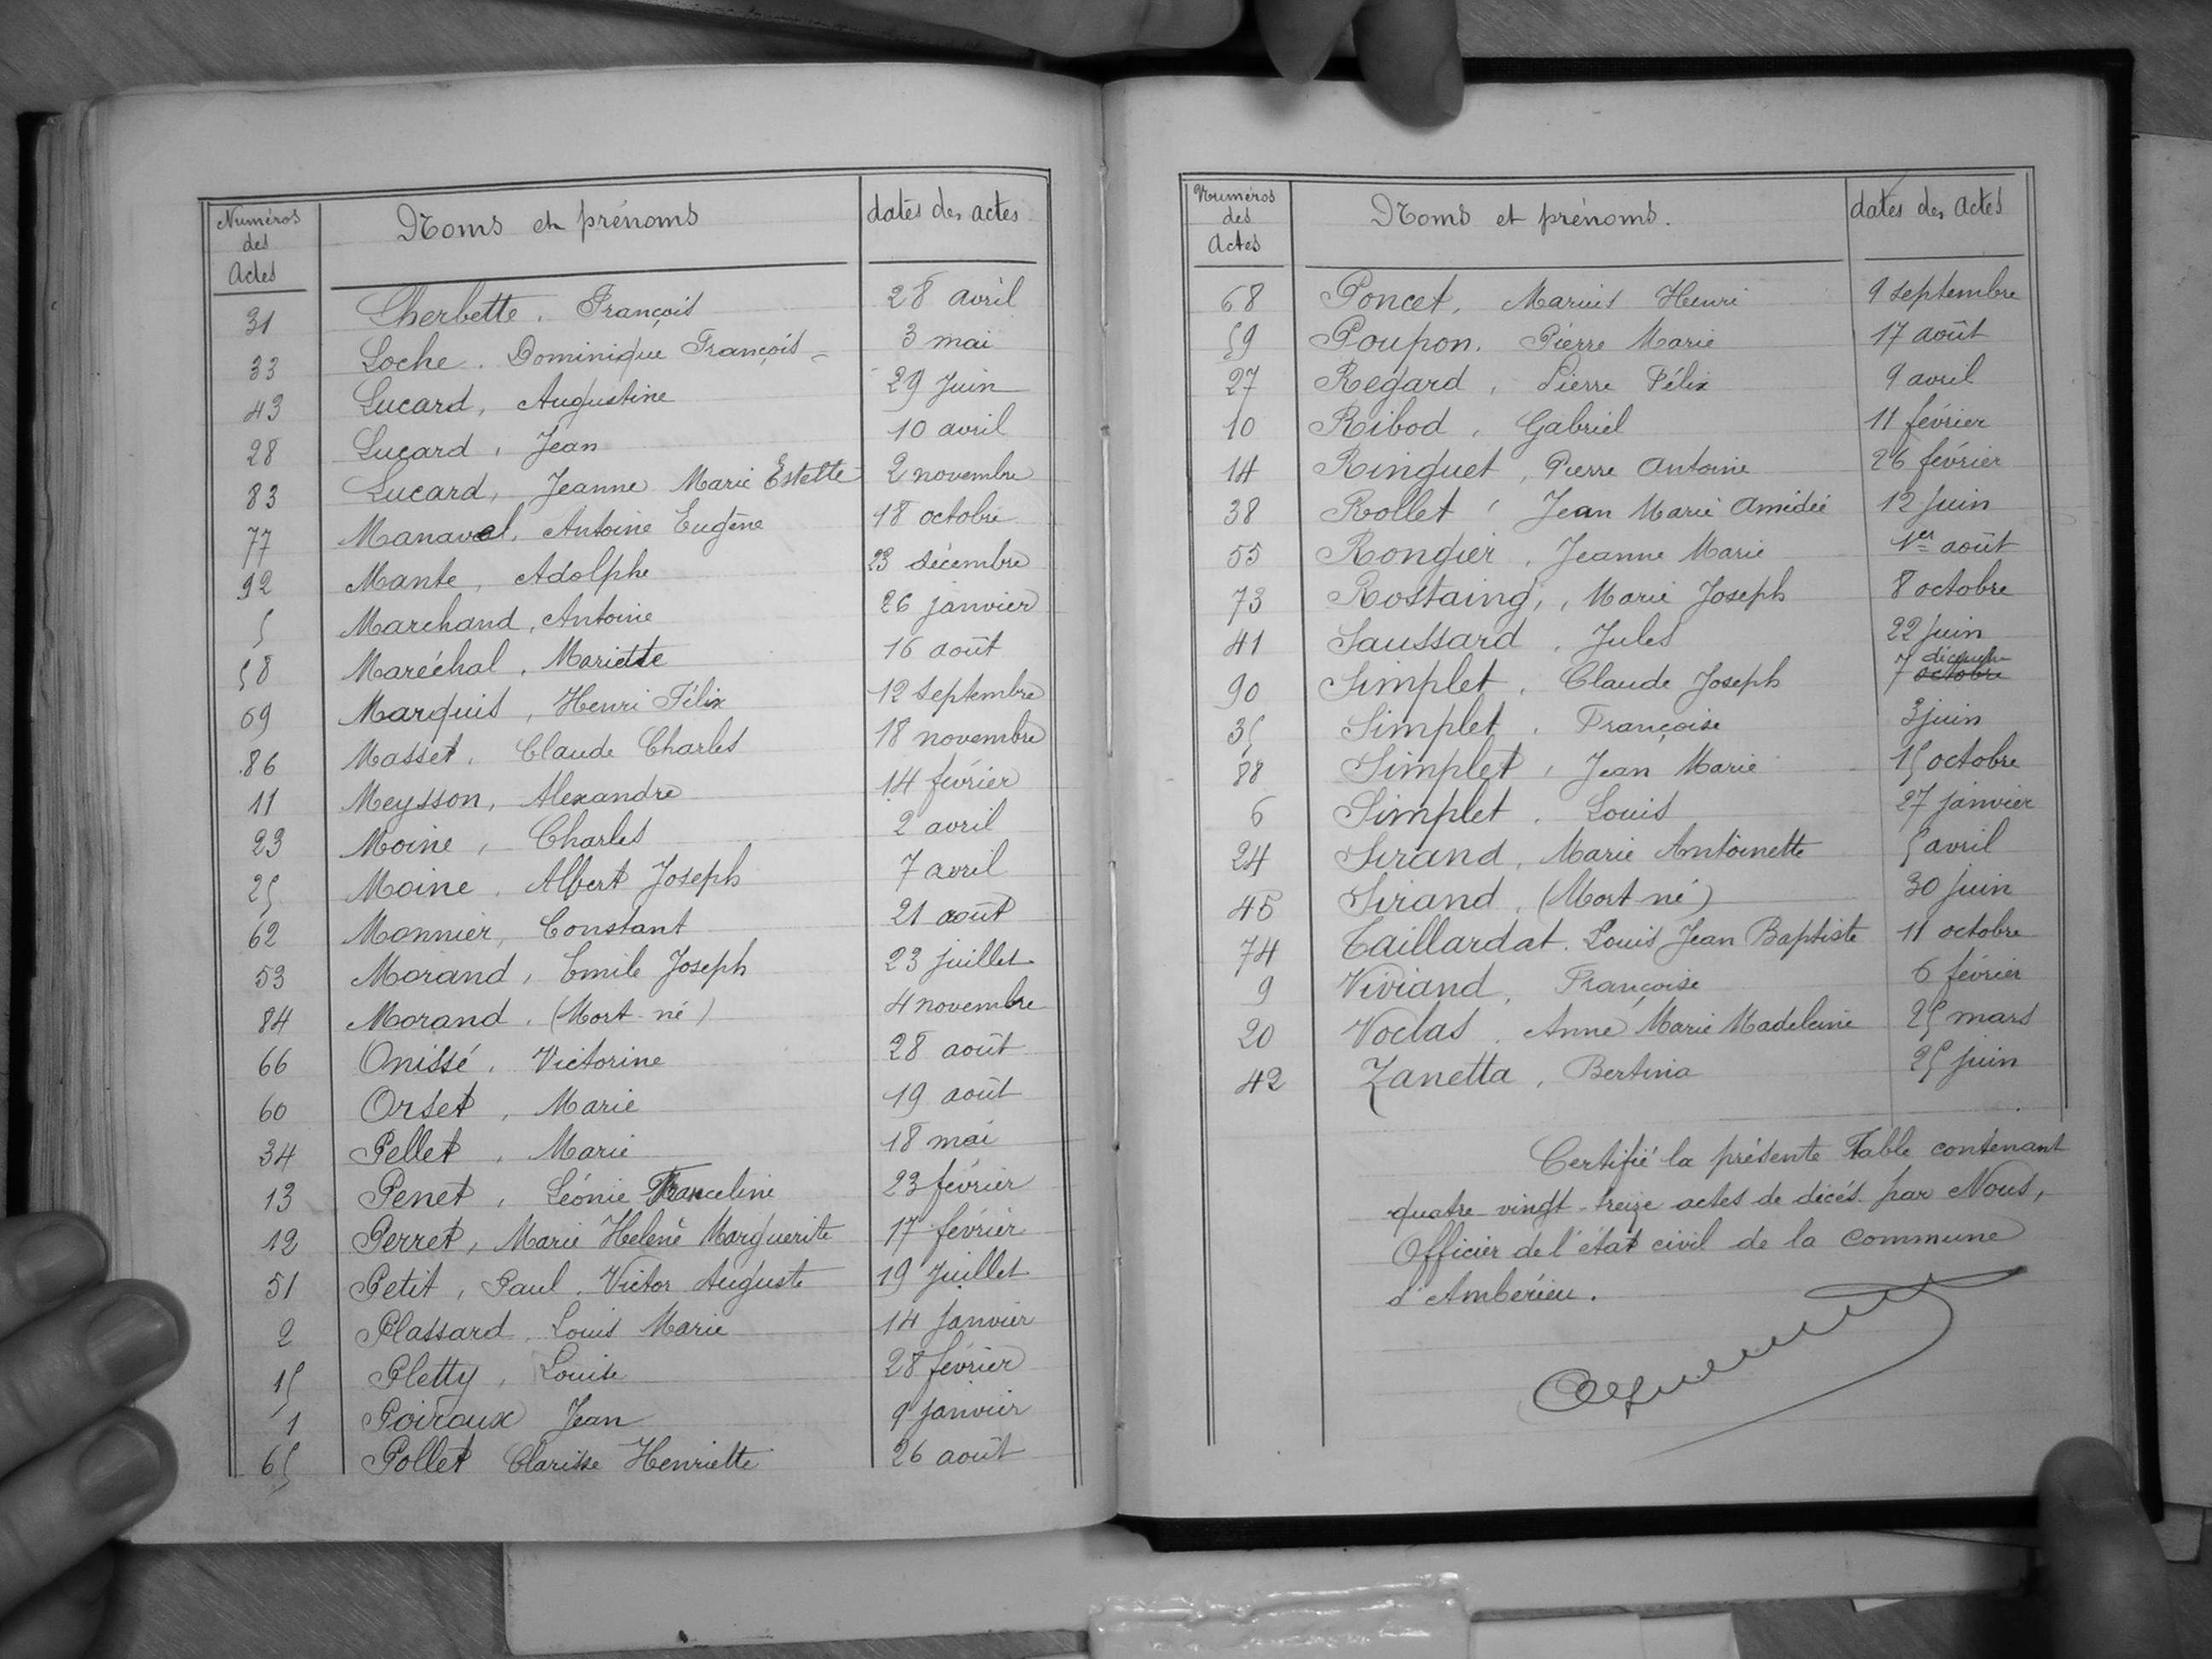 Numéros des Actes Noms et prénoms dates des actes
31 Lherbette, François 28 avril
33 Loche, Dominique François 3 mai
43 Lucard, Augustine 29 Juin
28 Lucard, Jean 10 avril
83 Lucard, Jeanne Marie Estelle 2 novembre
77 Manaval, Antoine Eugène 18 octobre
92 Mante, Adolphe 23 décembre
5 Marchand, Antoine 26 janvier
58 Maréchal, Mariette 16 août
69 Marquis, Henri Félix 12 septembre
86 Masset, Claude Charles 18 novembre
11 Meysson, Alexandre 14 février
23 Moine, Charles 2 avril
25 Moine, Albert Joseph 7 avril
62 Monnier, Constant 21 août
53 Morand, Emile Joseph 23 juillet
84 Morand, (Mort-né) 4 novembre
66 Onissé, Victorine 28 août
60 Orset, Marie 19 août
34 Pellet, Marie 18 mai
13 Penet, Léonie Franceline 23 février
12 Perret, Marie Helène Marguerite 17 février
51 Petit, Paul, Victor Auguste 19 Juillet
2 Plassard, Louis Marie 14 Janvier
15 Pletty, Louise 28 février
1 Poiraux Jean 9 janvier
65 Pollet Clarisse Henriette 26 août
Numéros des Actes Noms et prénoms. dates des actes
68 Poncet, Marius Henri 9 septembre
59 Poupon, Pierre Marie 17 août
27 Regard, Pierre Félix 9 avril
10 Ribod, Gabriel 11 février
14 Ringuet, Pierre Antoine 26 février
38 Rollet, Jean Marie Amédée 12 Juin
55 Rongier, Jeanne Marie 1er août
73 Rostaing, Marie Joseph 8 octobre
41 Saussard, Jules 22 Juin
90 Simplet, Claude Joseph 7 décembre
7 octobre
35 Simplet, Françoise 3 juin
88 Simplet, Jean Marie 15 octobre
6 Simplet, Louis 27 janvier
24 Sirand, Marie Antoinette 5 avril
45 Sirand, (Mort né) 30 Juin
74 Taillardat, Louis Jean Baptiste 11 octobre
9 Viviand, Françoise 6 février
20 Voclas, Anne Marie Madeleine 25 mars
42 Zanetta, Bertina 25 juin
Certifié la présente Table contenant
quatre-vingt-treize actes de décès par Nous,
Officier de l'état civil de la Commune
d'Ambérieu.